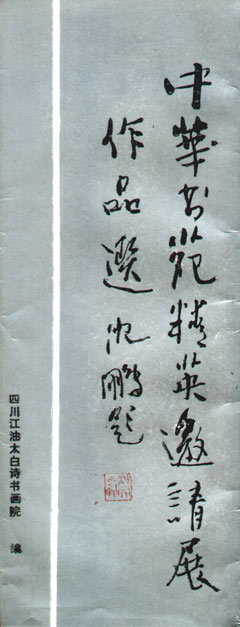 中華书苑精英邀請展
作品選 沈鹏题
四川江油太白诗书画院 编